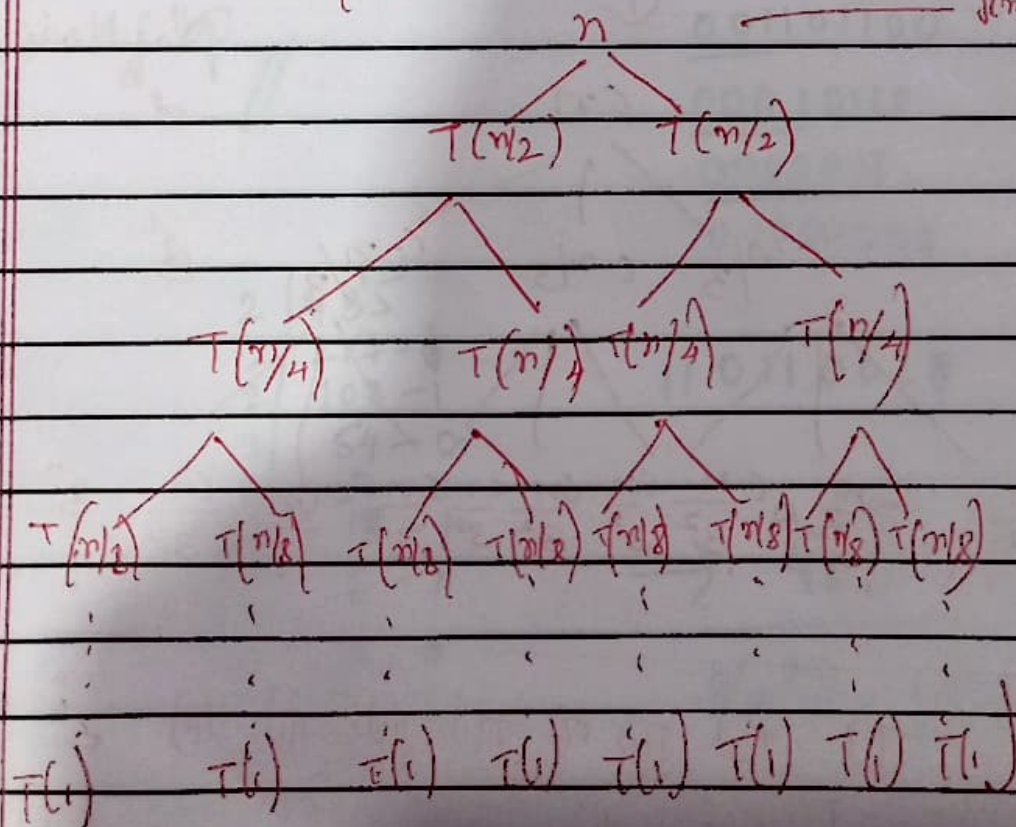 n
T(n/2) T(n/2)
T(n/4) T(n/4) T(n/4) T(n/4)
T(n/8) T(n/8) T(n/8) T(n/8) T(n/8) T(n/8) T(n/8) T(n/8)
T(1) T(1) T(1) T(1) T(1) T(1) T(1) T(1)